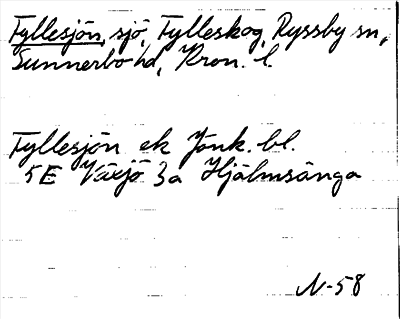 Fyllesjön, sjö, Fylleskog, Ryssby sn,
Sunnerbo hd, Kron. l.
Fyllesjön ek Jönk. bl.
5E Växjö 3a Hjälmsänga
N-58